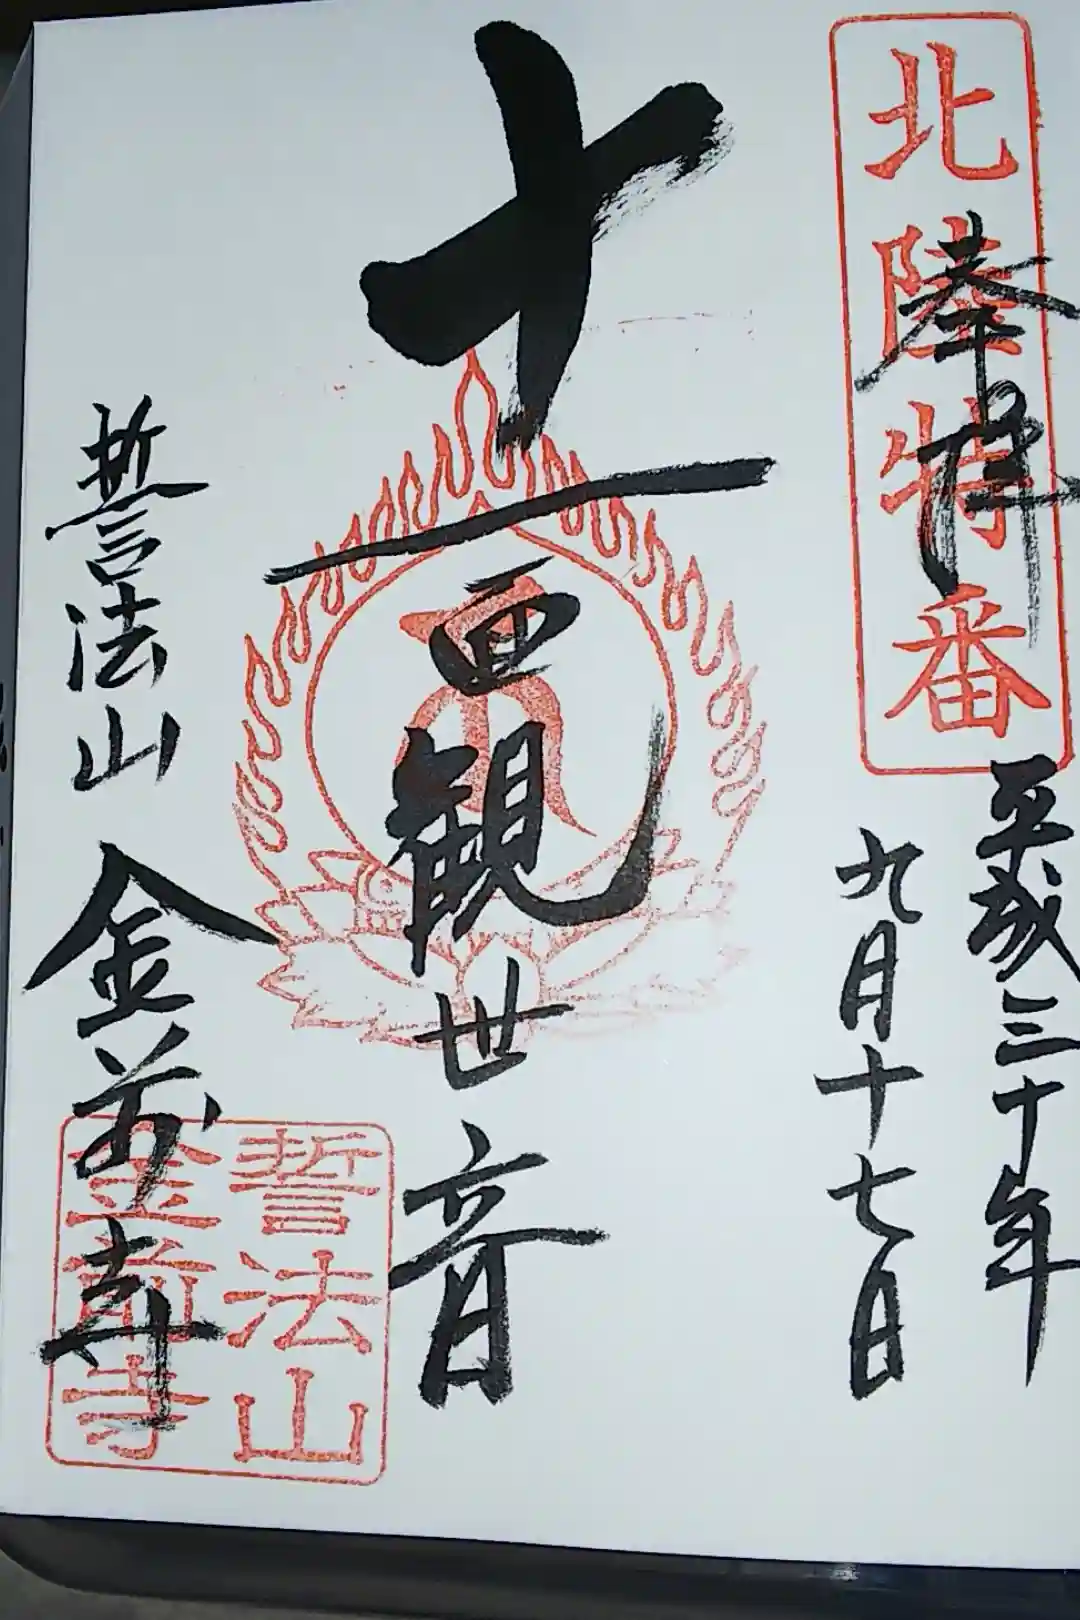 北陸特番
奉拝
平成三十年
九月十七日
十一面観世音
誓法山 金前寺
誓法山
金前寺